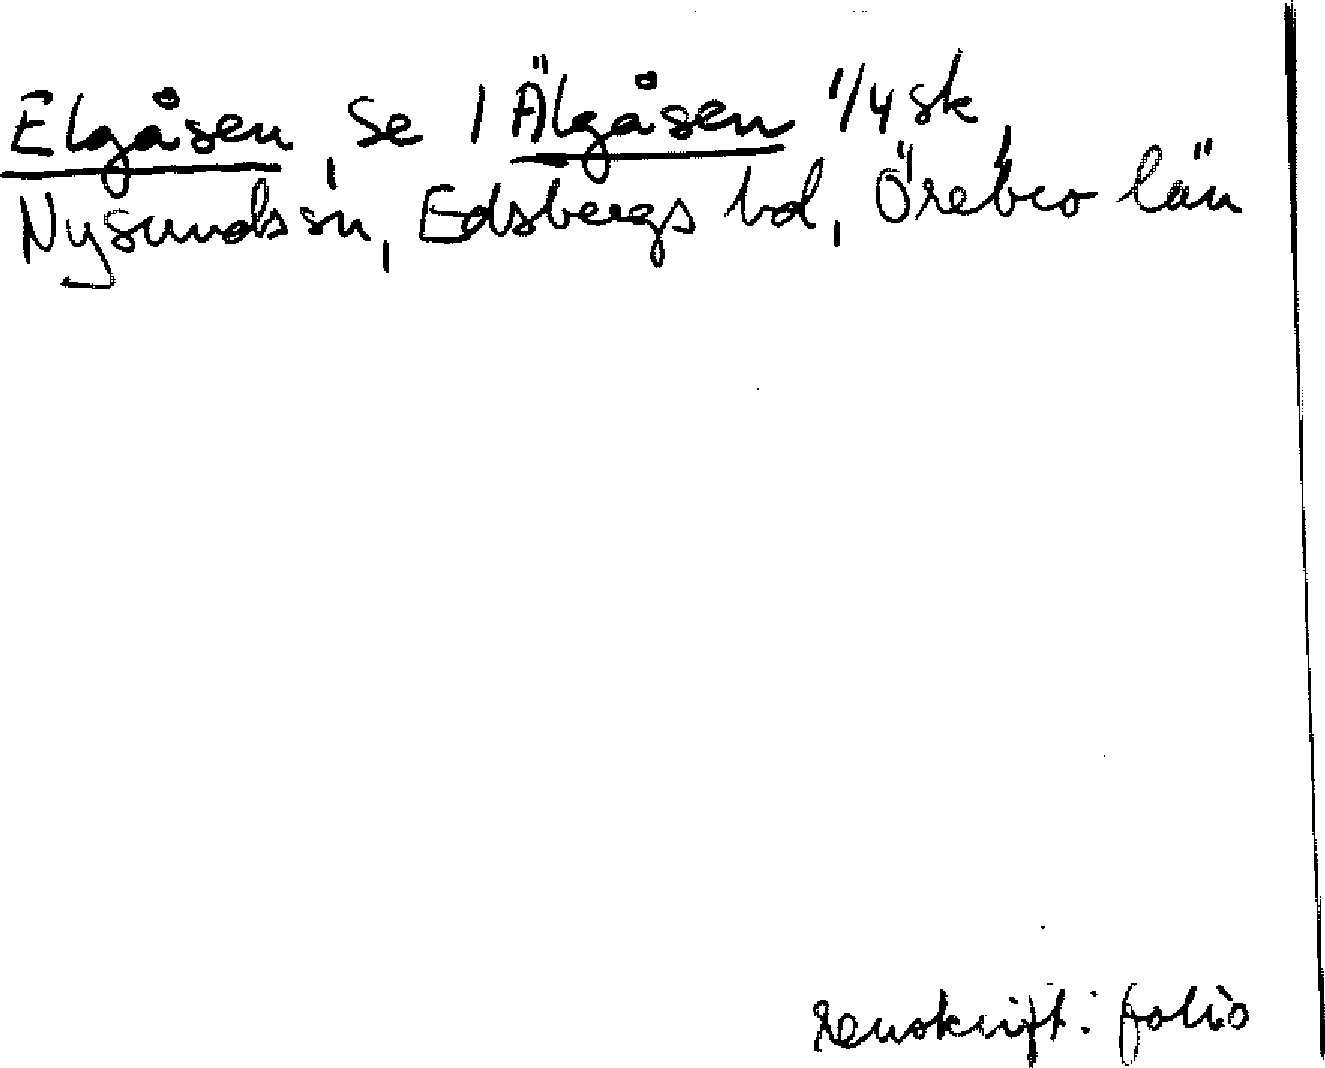 Elgåsen, se 1 Älgåsen 1/4 sk
Nysunds sn, Edsbergs hd, Örebro län
renskrift: folio